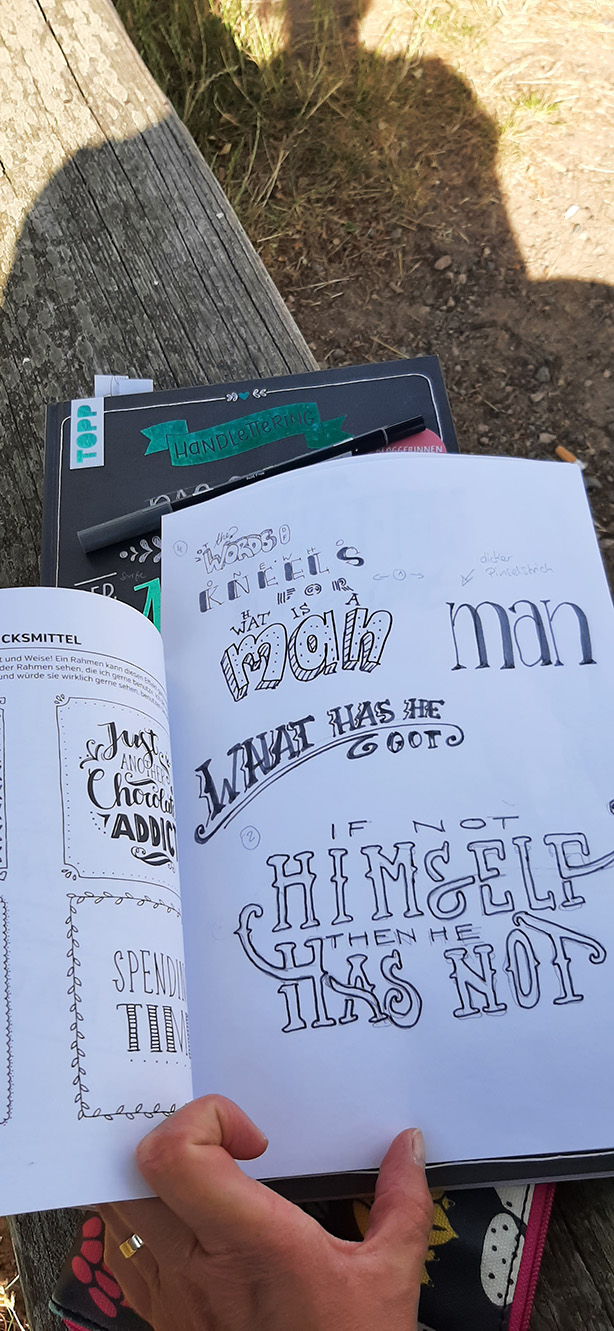 TOPP
HANDLETTERING
BLOGGERINNEN
CKSMITTEL
t und Weise! Ein Rahmen kann diesen
der Rahmen sehen, die ich gerne benutze
und würde sie wirklich gerne sehen,
Just
ANOTHER
Chocolate
ADDIC
SPENDIN
TIM
the
WORDS
KNEELS
FOR
WHAT IS A
man
dicker
Pinselstrich
man
WHAT HAS HE
GOT
2
IF NOT
HIMSELF
THEN HE
HAS NOT